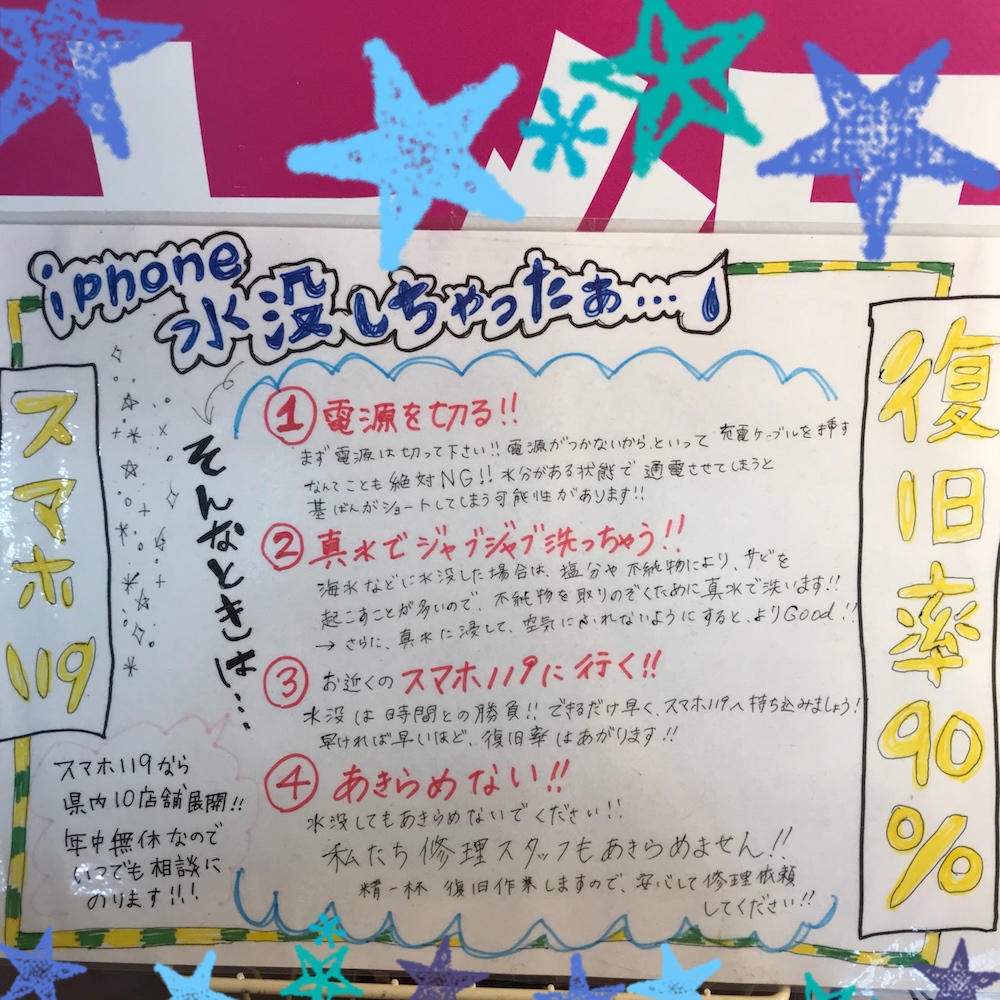 iphone
水没しちゃったぁ…
スマホ119
そんなときは…
① 電源を切る!!
まず電源は切って下さい!! 電源がつかないからといって 充電ケーブルを挿す
なんてことも絶対NG!! 水分がある状態で通電させてしまうと
基ばんがショートしてしまう可能性があります!!
② 真水でジャブジャブ洗っちゃう!!
海水などに水没した場合は、塩分や不純物により、サビを
起こすことが多いので、不純物を取りのぞくために真水で洗います!!
→ さらに、真水に浸して、空気にふれないようにすると、よりGood!!
③ お近くのスマホ119に行く!!
水没は時間との勝負!! できるだけ早く、スマホ119へ持ち込みましょう!
早ければ早いほど、復旧率はあがります!!
④ あきらめない!!
水没してもあきらめないでください!!
私たち修理スタッフもあきらめません!!
精一杯 復旧作業しますので、安心して修理依頼
してください!!
スマホ119なら
県内10店舗展開!!
年中無休なので
いつでも相談に
のります!!!
復旧率90%